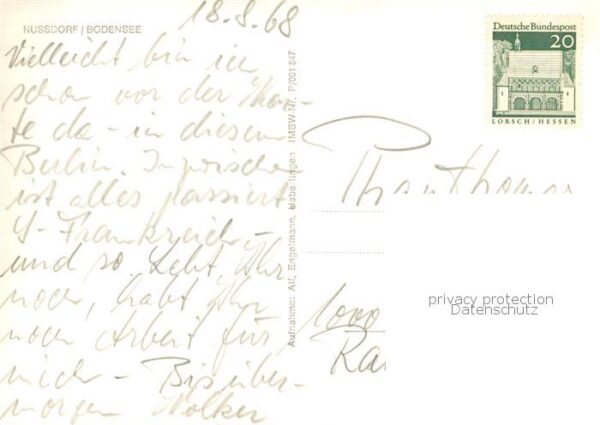 18.8.68
NUSSDORF / BODENSEE
Vielleicht bin ich
schon vor der Kar-
te da - in diesem
Berlin. Inzwischen
ist alles passiert
- Frankreich -
und so. Lebt Ihr
noch, habt Ihr
noch Arbeit für
mich - Bis über-
morgen Volker
Aufnahme: Alf. Engelmann, Ueberlingen IMBW-Nr. P/001 847
Deutsche Bundespost
20
LORSCH / HESSEN
1000
privacy protection
Datenschutz